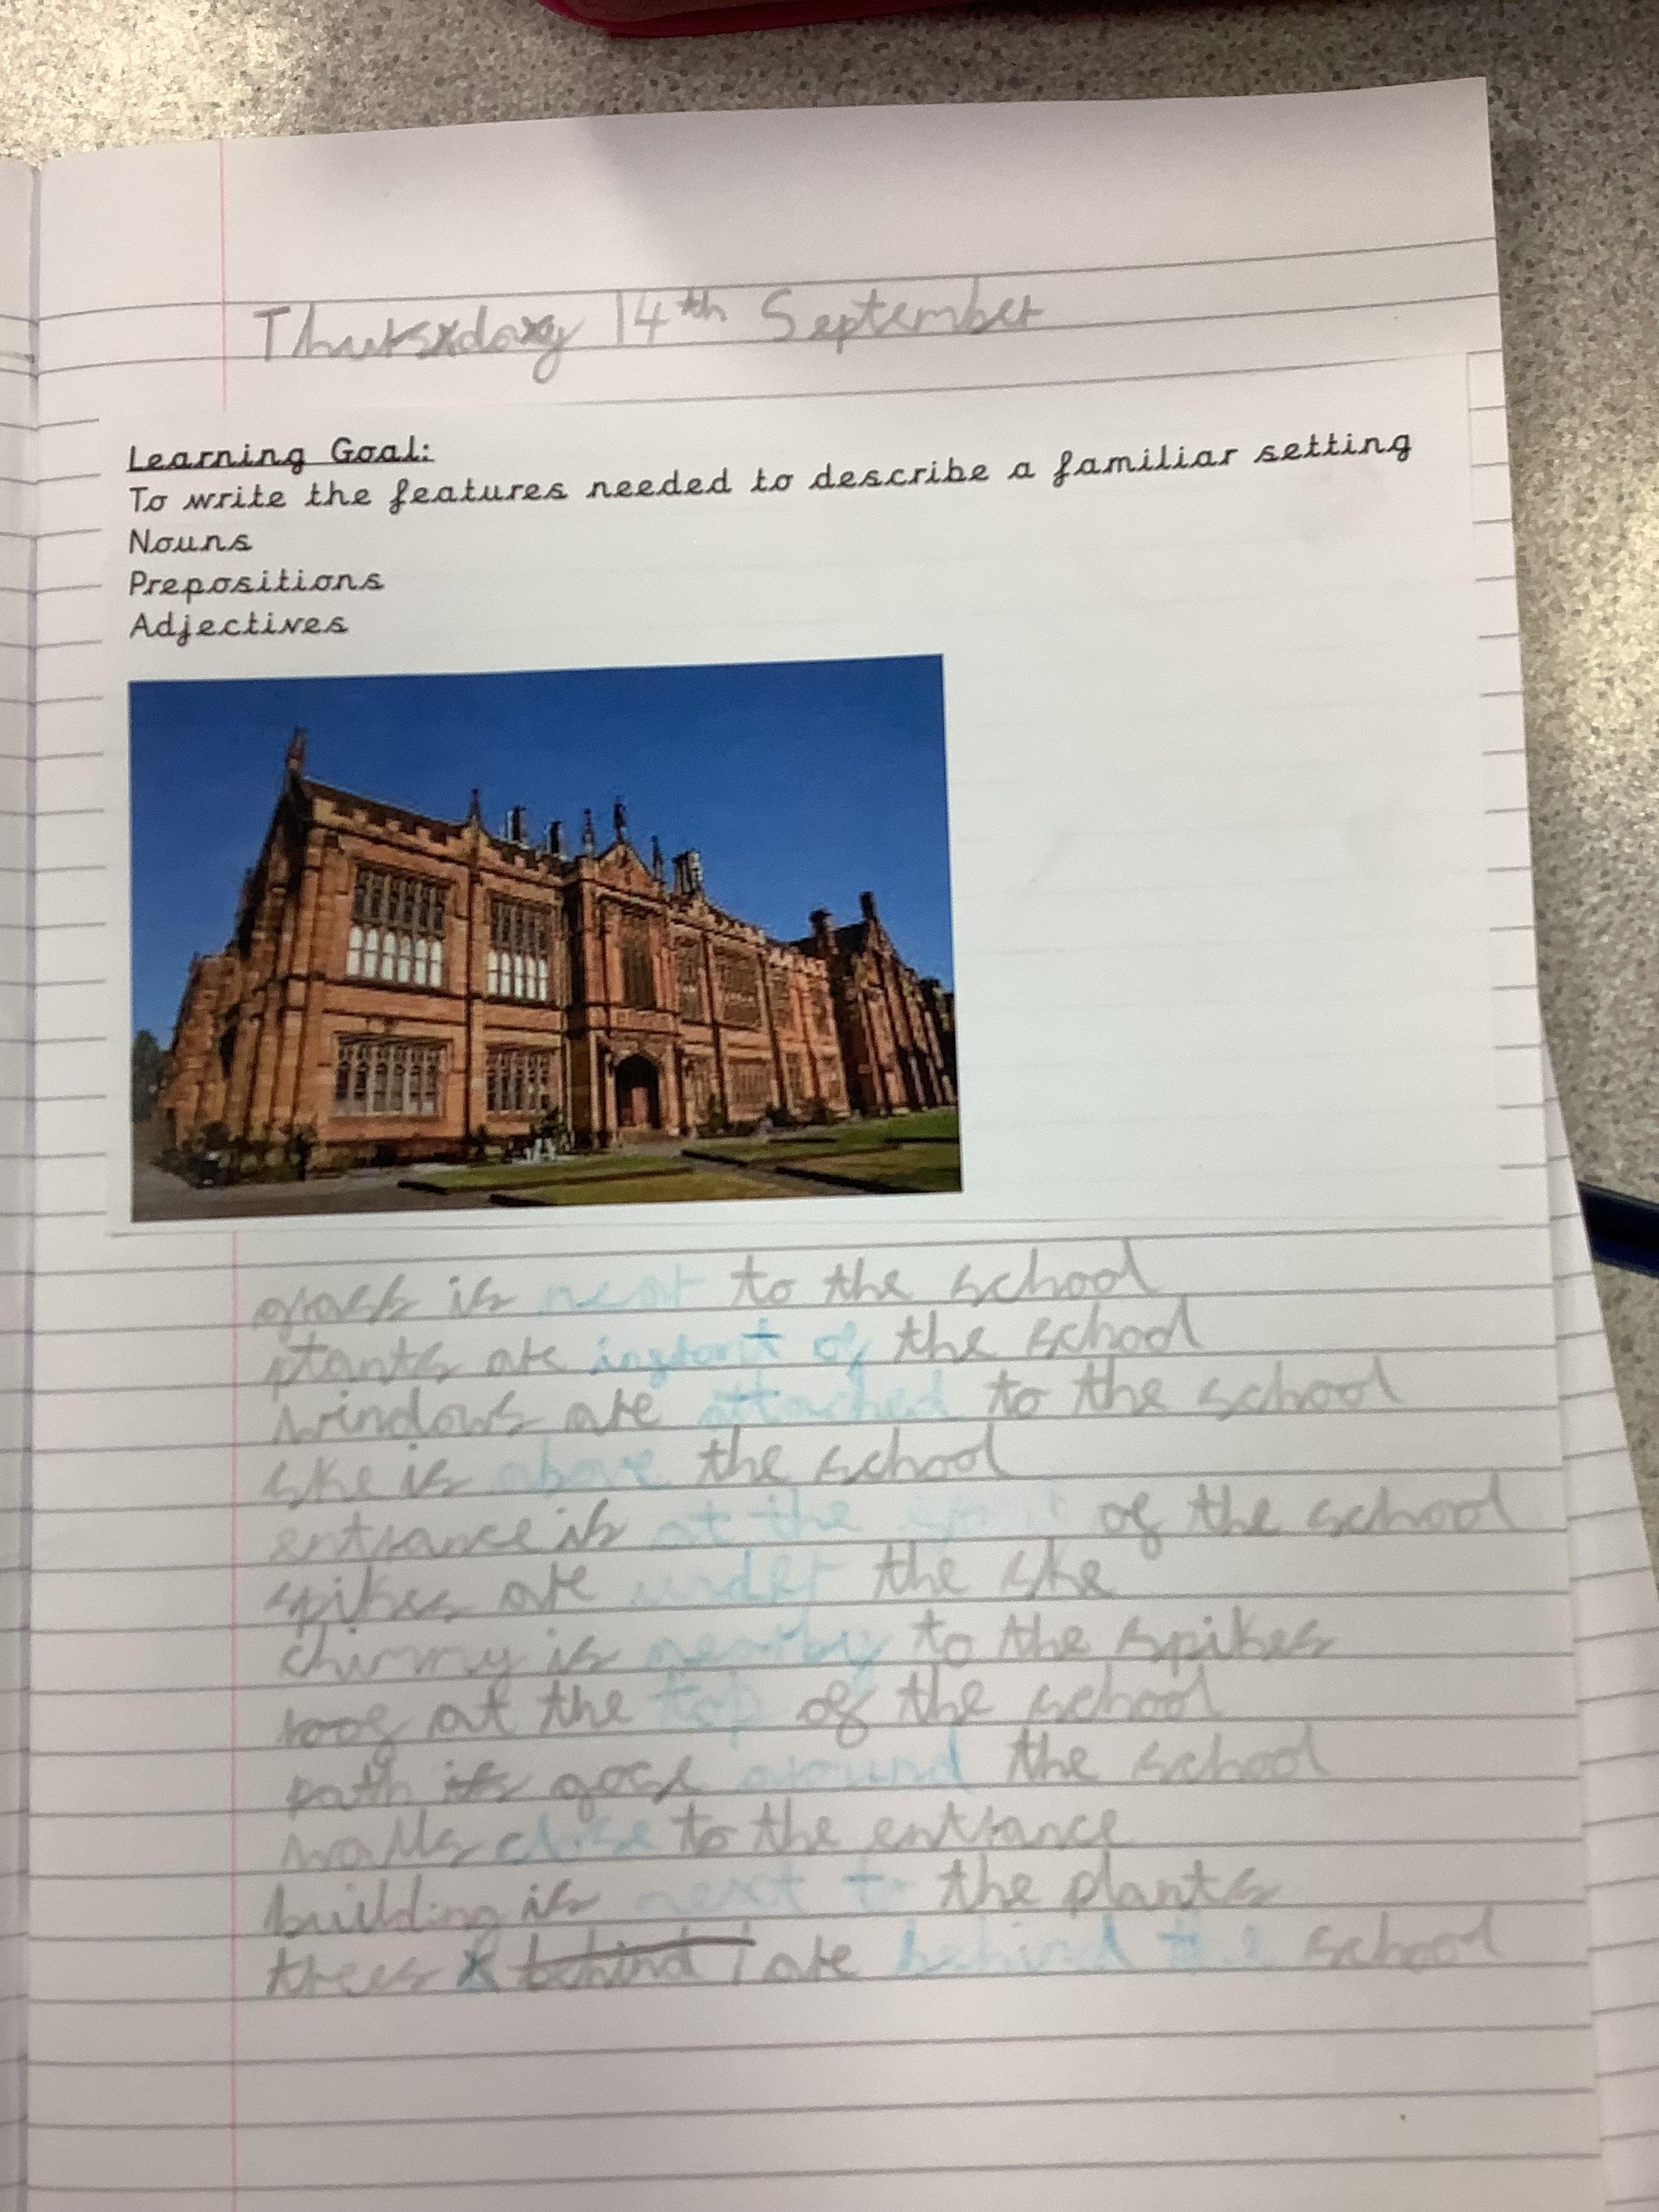 Thursday 14th September
Learning Goal:
To write the features needed to describe a familiar setting
Nouns
Prepositions
Adjectives
grass is next to the school
plants are infront of the school
windows are attached to the school
ske is above the school
entrance is at the of the school
spikes are under the ske
chimny is nearby to the spikes
roof at the top of the school
path gose around the school
walls close to the entrance
building is next to the plants
trees behind are behind the school